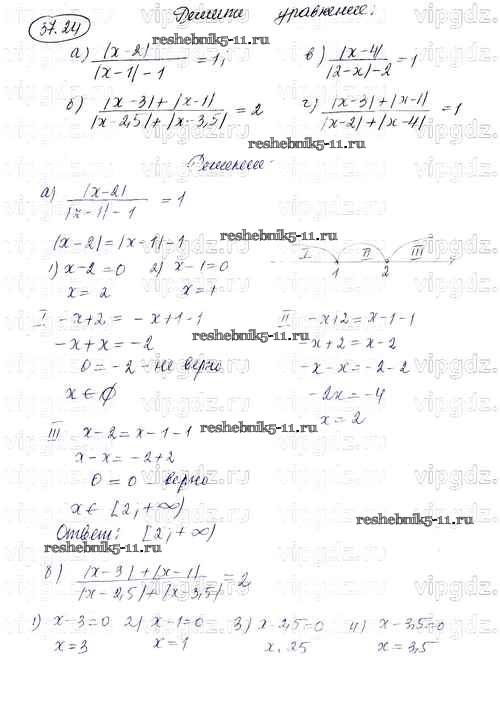 37.24
Решите уравнение:
а) |x-2| / (|x-1|-1) = 1;
в) |x-4| / (|2-x|-2) = 1
б) (|x-3|+|x-1|) / (|x-2,5|+|x-3,5|) = 2
г) (|x-3|+|x-1|) / (|x-2|+|x-4|) = 1
reshebnik5-11.ru
Решение:
а) |x-2| / (|x-1|-1) = 1
|x-2|=|x-1|-1
1) x-2=0 2) x-1=0
x=2 x=1
I II III
1 2
I -x+2=-x+1-1
-x+x=-2
0=-2 - не верно
x∈∅
II -x+2=x-1-1
-x+2=x-2
-x-x=-2-2
-2x=-4
x=2
III x-2=x-1-1
x-x=-2+2
0=0 - верно
x∈[2;+∞)
Ответ: [2;+∞)
reshebnik5-11.ru
б) (|x-3|+|x-1|) / (|x-2,5|+|x-3,5|) = 2
1) x-3=0 2) x-1=0 3) x-2,5=0 4) x-3,5=0
x=3 x=1 x.25 x=3,5
vipgdz.ru